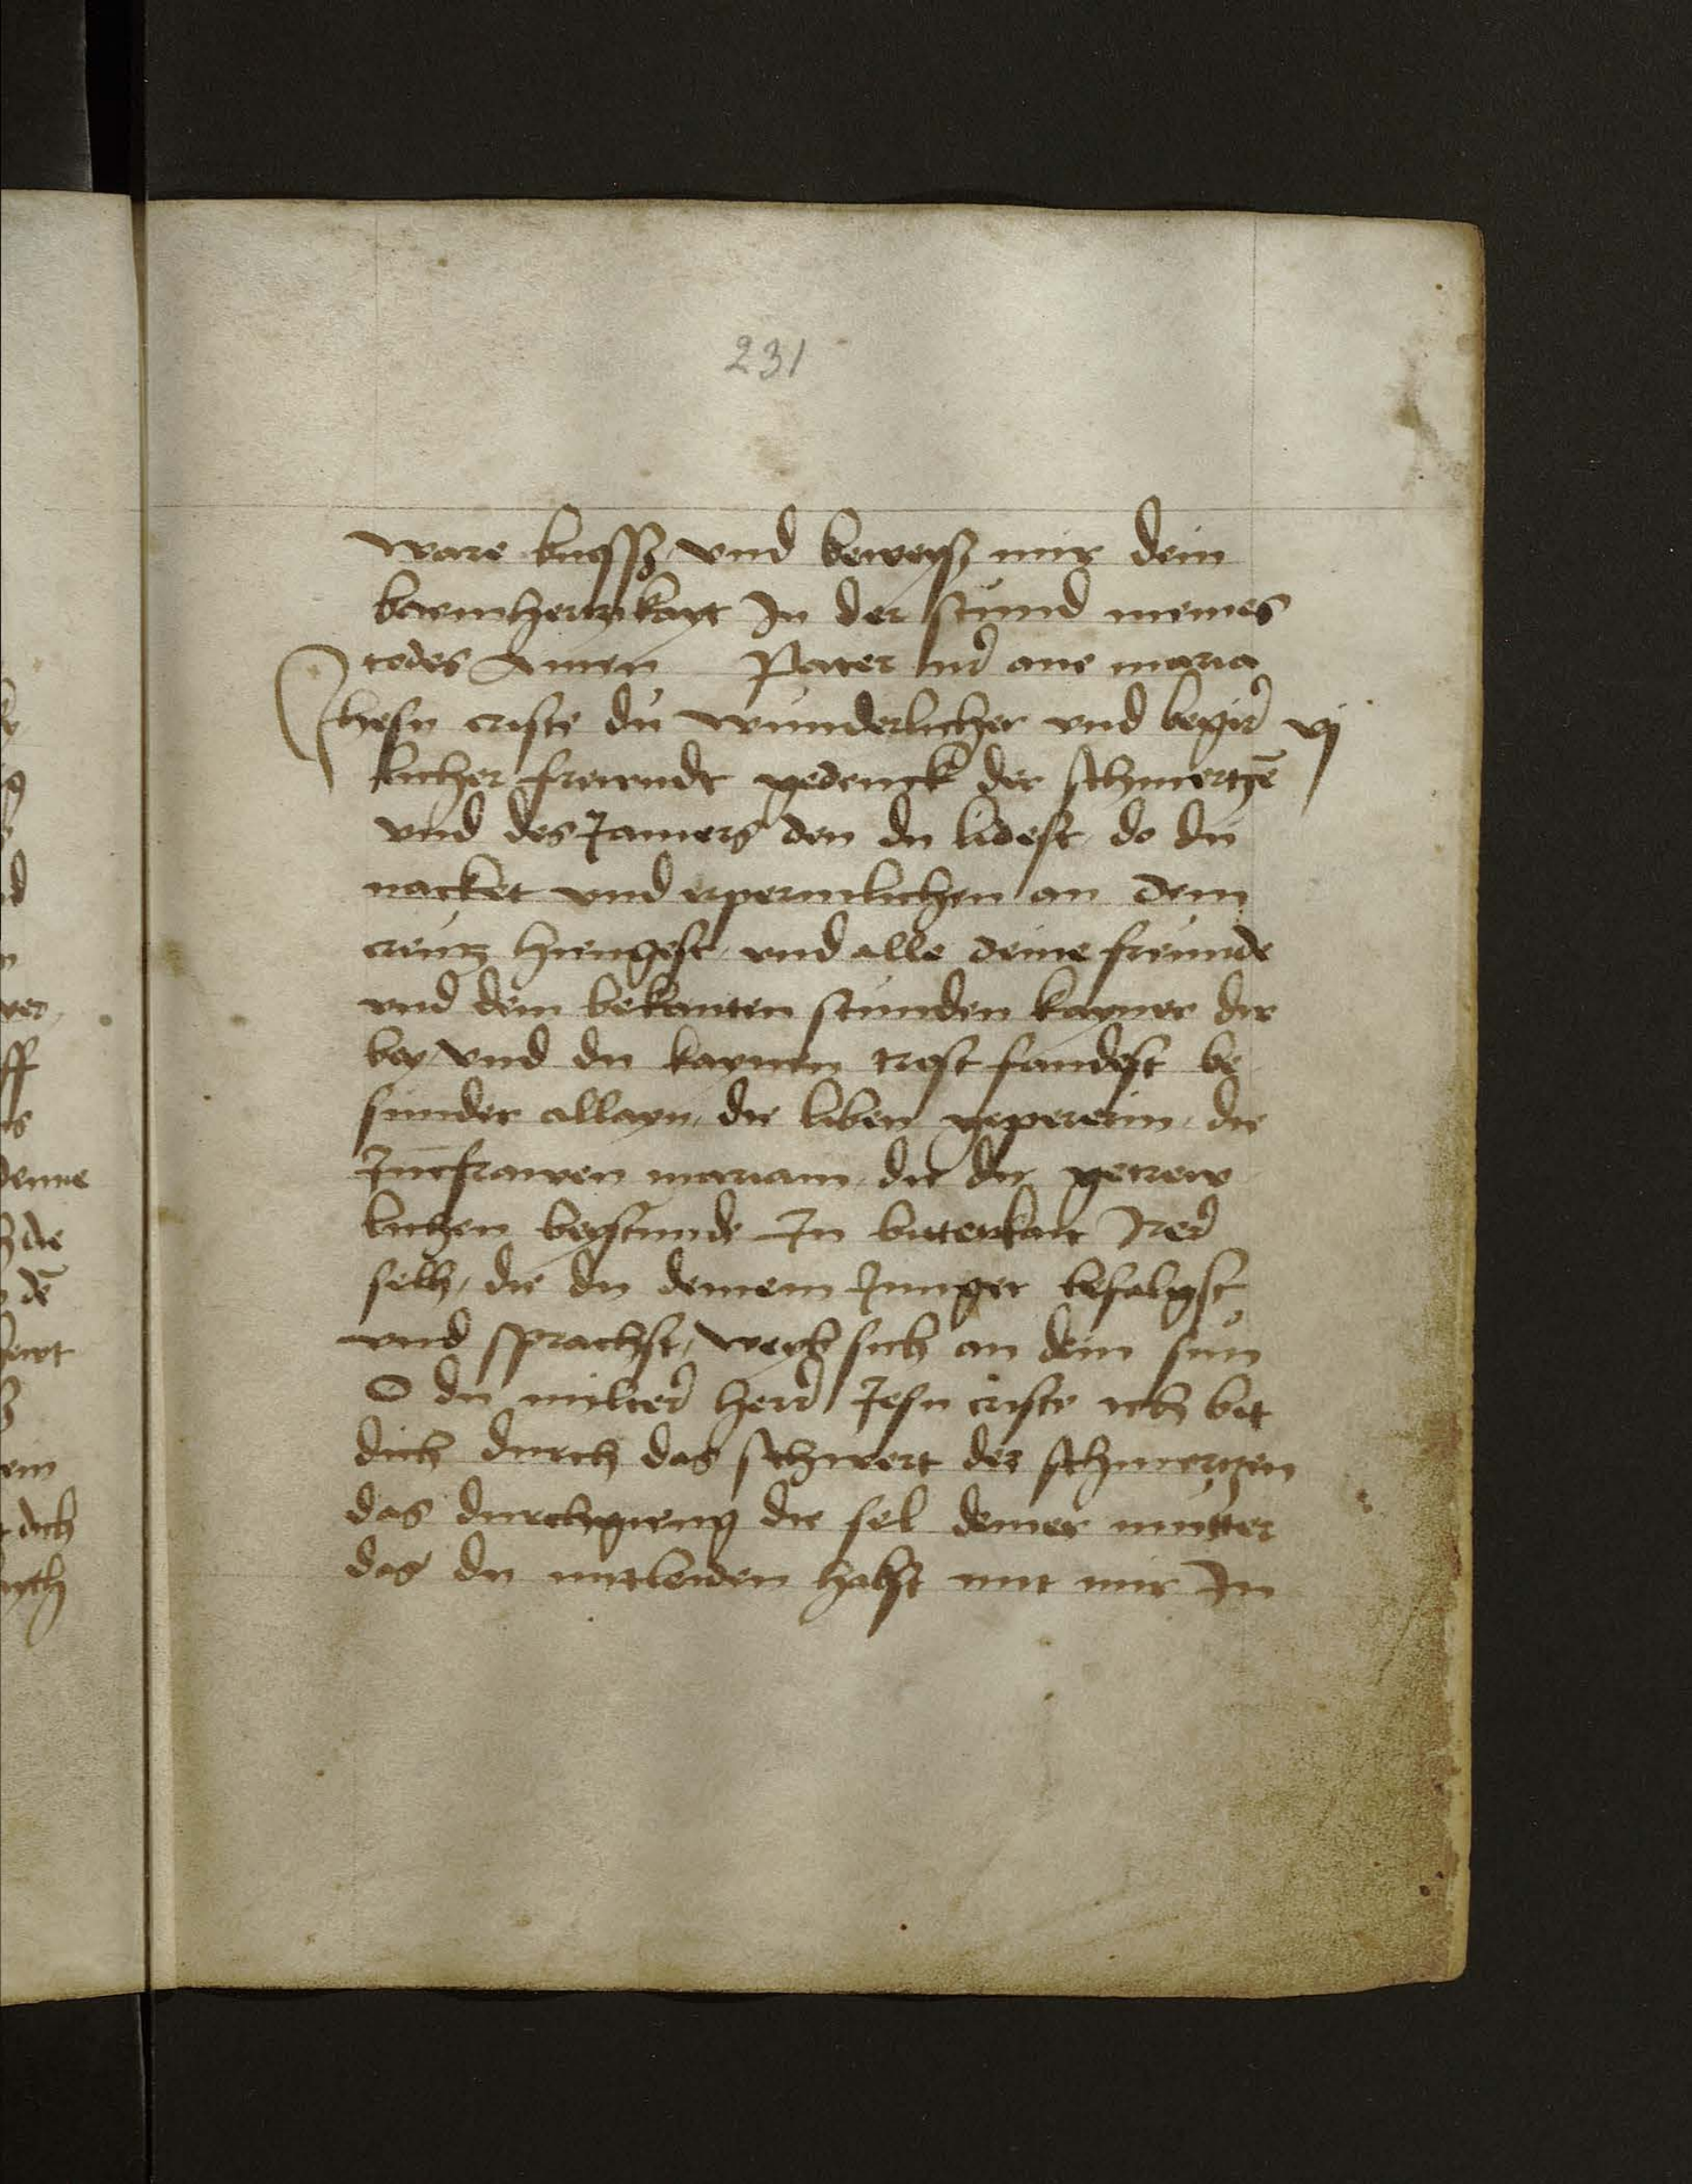 231
ware buessz und beweyß mir dein
barmhertzikayt In der stund meines
todes Amen Pater nr̃ aue maria
Jhesu criste du wunderlicher vnd begir vj
licher frewndt gedenck der schmertzē
vnd des Jamers den du lidest do du
nacket vnd erpermlichen an dem
creutz hiengest vnd alle deine freunde
vnd dein bekanten stunden kayner dir
bey vnd du kaynen trost fandest be
sunder allayn die liben gepererin die
Junckfrawen mariam die dir getrew
lichen beystunde In biterkait Irer
selb, die du deinem Junger befalhst
vnd sprachst, weyb sich an dein sun
O du milter herr Jesu criste ich bit
dich durch das schwert der schmertzen
das durchgieng die sel deiner mutter
das du mitleiden habst mit mir In